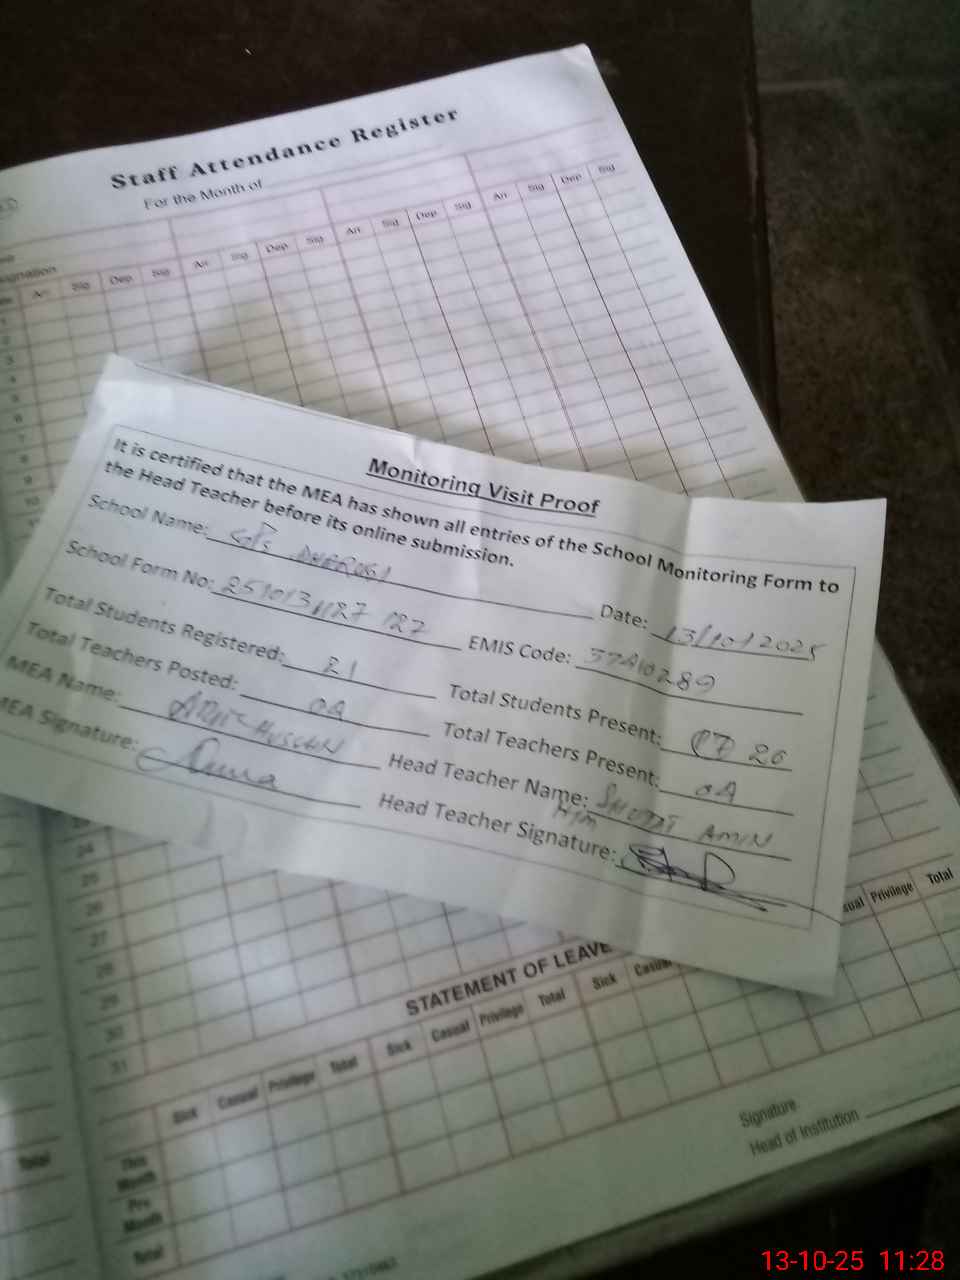 Staff Attendance Register
For the Month of
Arr Sig Dep Sig Arr Sig Dep Sig Arr Sig Dep Sig Arr Sig Dep Sig
1
2
3
4
5
6
7
8
9
10
Monitoring Visit Proof
It is certified that the MEA has shown all entries of the School Monitoring Form to
the Head Teacher before its online submission.
School Name: GPS Date: 13/10/2025
School Form No: EMIS Code: 37410289
Total Students Registered: 21 Total Students Present: 20
Total Teachers Posted: 04 Total Teachers Present: 04
MEA Name: Head Teacher Name: AMIN
MEA Signature: Head Teacher Signature:
24
25
26
27
28
29
30
31
STATEMENT OF LEAVE
Sick Casual Privilege Total Sick Casual Privilege Total Sick Casual Privilege Total
This Month
Pre Month
Total
Total
Signature
Head of Institution
13-10-25 11:28